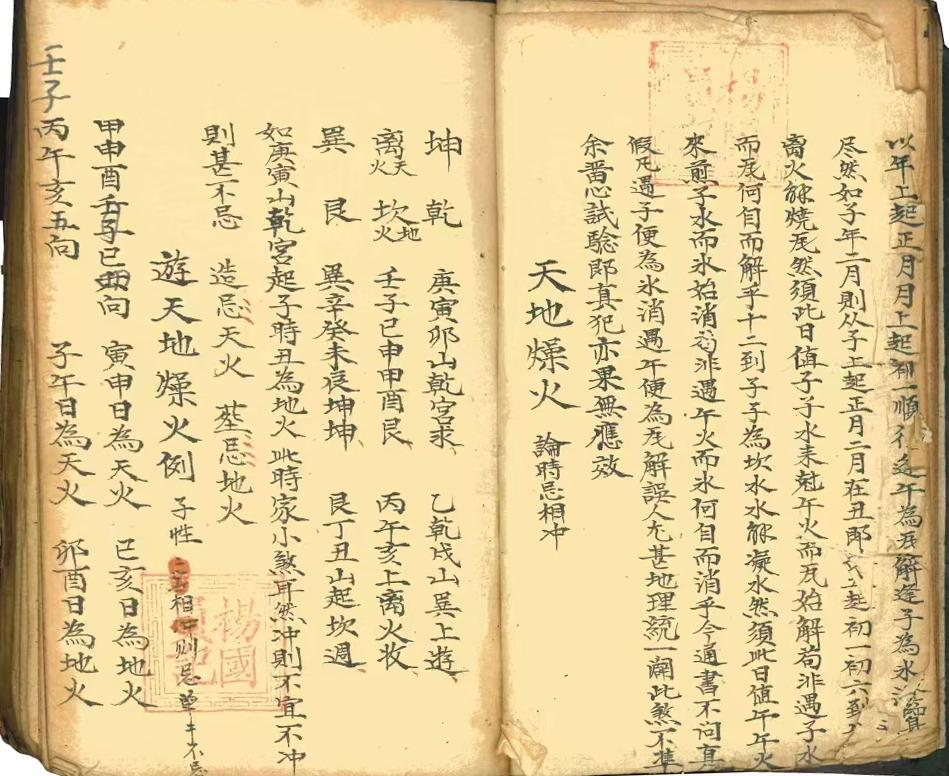 以年上起正月月上起初一順行逢午為瓦解逢子為氷消
尽然如子年二月則从子上起正月二月在丑即丑上起初一初六到
离火能燒瓦然須此日值子子水来尅午火而瓦始解苟非遇子水
而瓦何自而解乎十二到子子為坎水水能凝氷然須此日值午午火
來煎子水而氷始消苟非遇午火而氷何自而消乎今通書不问真
假凡遇子便為氷消遇午便為瓦解誤人尤甚地理統一闢此煞不準
余畱心試驗即真犯亦果無應效
天地燥火 論時忌相冲
坤 乾 庚寅卯山乾宮求 乙乾戌山巽上遊
离天火 坎地火 壬子已申甲酉艮 丙午亥上離火收
巽 艮 巽辛癸未辰坤坤 艮丁丑山起坎週
如庚寅山乾宮起子時丑為地火此時家小煞耳然冲則不宜不冲
則甚不忌 造忌天火 塟忌地火
遊天地燥火例 子性 相 則忌 单 不忌
甲申酉壬子已 向 寅申日為天火 已亥日為地火
壬子丙午亥五向 子午日為天火 卯酉日為地火
楊國 記